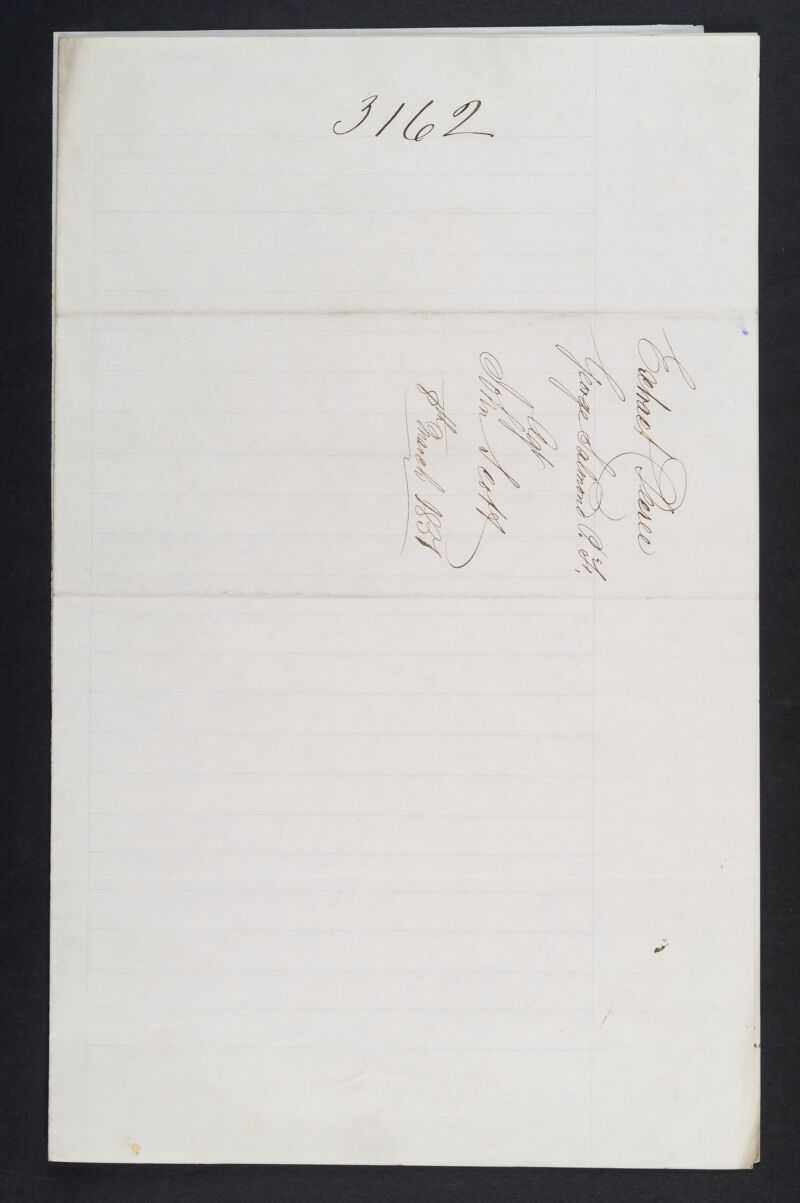 3162
Extract Decree
George Salmond P. F.
Agt
John Scott
8th March 1837